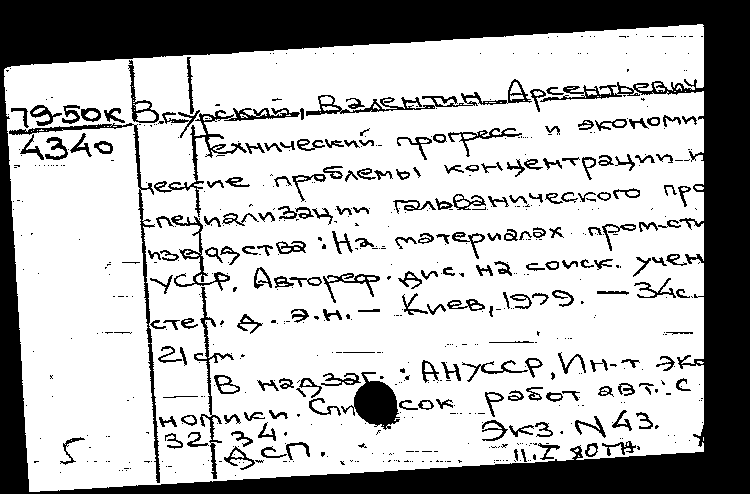 79-50к
4340
Вгурский, Валентин Арсентьевич
Технический прогресс и экономи-
ческие проблемы концентрации и
специализации гальванического про
изводства: На материалах пром-сти
УССР. Автореф. дис. на соиск. учен
степ. д. э.н. – Киев, 1979. – 34с.
21 см.
В надзаг.: АН УССР, Ин-т эко
номики. Список работ авт.: с
32-34.
Экз. N 43.
ДСП.
11.I 80тн.
5